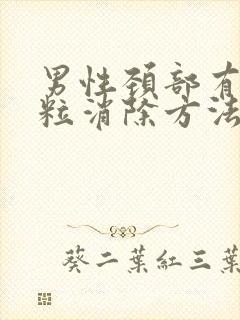 男性頚部有
粒消除方法
葵二葉紅三葉